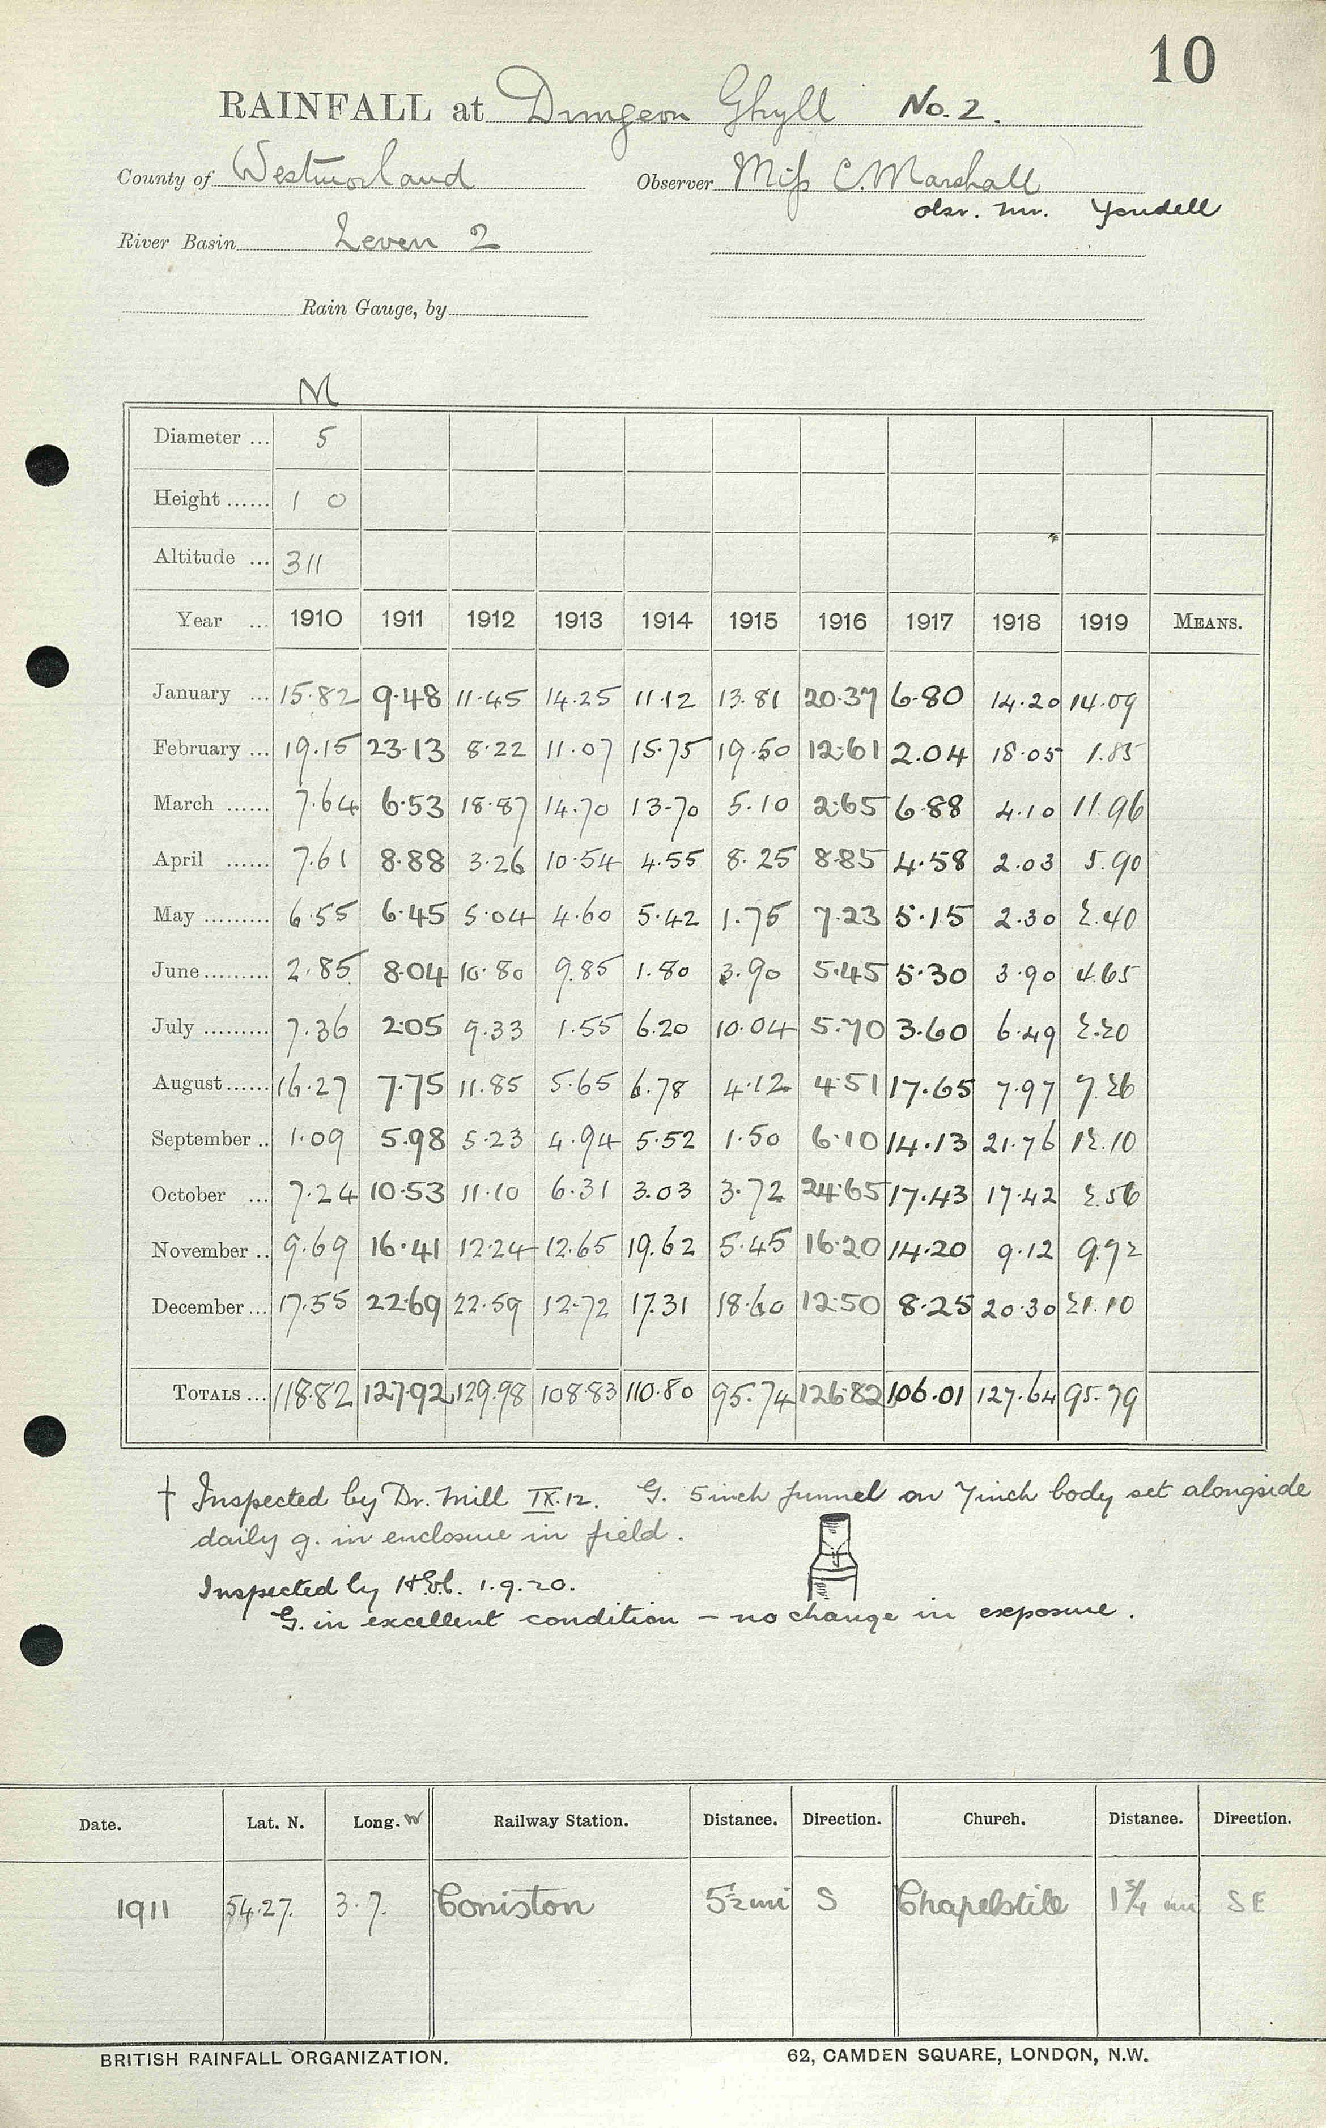 10
RAINFALL at Dungeon Ghyll No. 2.
County of Westmorland Observer Miss C. Marshall
obsr. Mr. Yendell
River Basin Leven 2
Rain Gauge, by
M
Diameter ... 5
Height ...... 1 0
Altitude ... 311
Year ... 1910 1911 1912 1913 1914 1915 1916 1917 1918 1919 MEANS.
January ... 15.82 9.48 11.45 14.25 11.12 13.81 20.37 6.80 14.20 14.09
February ... 19.15 23.13 8.22 11.07 15.75 19.50 12.61 2.04 18.05 1.85
March ...... 7.64 6.53 18.87 14.70 13.70 5.10 2.65 6.88 4.10 11.96
April ...... 7.61 8.88 3.26 10.54 4.55 8.25 8.85 4.58 2.03 5.90
May ......... 6.55 6.45 5.04 4.60 5.42 1.75 7.23 5.15 2.30 2.40
June ......... 2.85 8.04 10.80 9.85 1.80 3.90 5.45 5.30 3.90 4.65
July ......... 7.36 2.05 9.33 1.55 6.20 10.04 5.70 3.60 6.49 2.20
August ...... 16.27 7.75 11.85 5.65 6.78 4.12 4.51 17.65 7.97 7.26
September .. 1.09 5.98 5.23 4.94 5.52 1.50 6.10 14.13 21.76 12.10
October ... 7.24 10.53 11.10 6.31 3.03 3.72 24.65 17.43 17.42 2.56
November .. 9.69 16.41 12.24 12.65 19.62 5.45 16.20 14.20 9.12 9.72
December ... 17.55 22.69 22.59 12.72 17.31 18.60 12.50 8.25 20.30 21.10
TOTALS ... 118.82 127.92 129.98 108.83 110.80 95.74 126.82 106.01 127.64 95.79
† Inspected by Dr. Mill IX.12. G. 5 inch funnel on 7 inch body set alongside
daily g. in enclosure in field.
Inspected by 1.9.20.
G. in excellent condition – no change in exposure.
Date. Lat. N. Long. W Railway Station. Distance. Direction. Church. Distance. Direction.
1911 54.27. 3.7. Coniston 5½ mi S Chapelstile 1¾ mi SE
BRITISH RAINFALL ORGANIZATION. 62, CAMDEN SQUARE, LONDON, N.W.